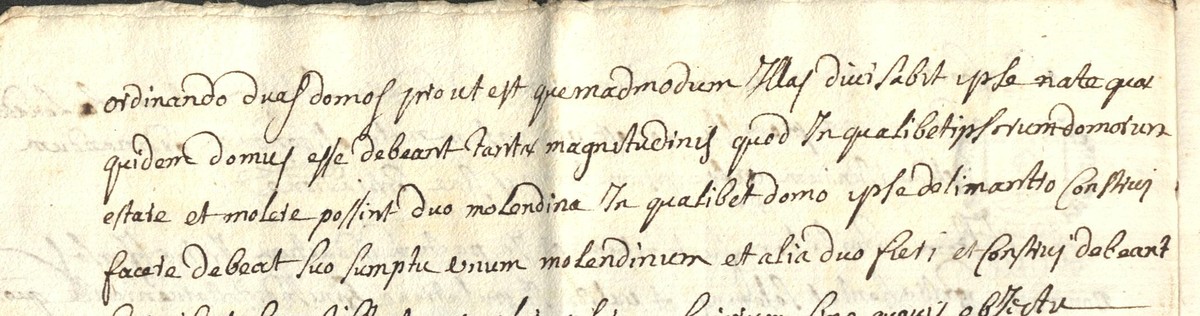 ordinando duas domos prout est quemadmodum Illas diuisabit ipse nate qua
quidem domus esse debeant tante magnitudinis quod In qualibet ipsorum domorum
estare et molere possint duo molendina In qualibet domo ipse dolimantio Construi
facere debeat suo sumptu unum molendinum et alia duo fieri et Construi debeant